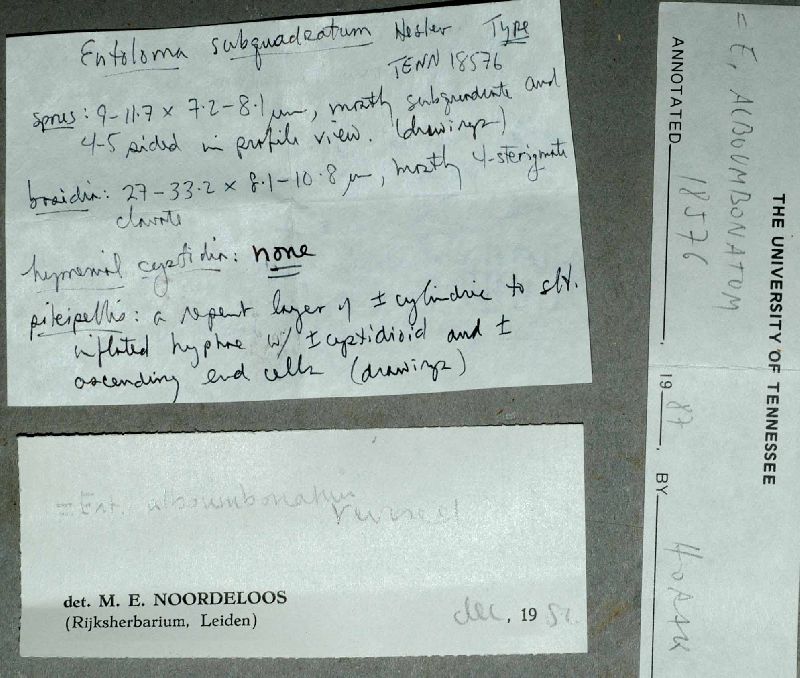 Entoloma subquadratum Hesler Type
TENN 18576
spores: 9-11.7 x 7.2-8.1 µm, mostly subquadrate and
4-5 sided in profile view. (drawings)
basidia: 27-33.2 x 8.1-10.8 µm, mostly 4-sterigmate
clavate
hymenial cystidia: none
pileipellis: a repent layer of ± cylindric to slt.
inflated hyphae w/ ± cystidioid and ±
ascending end cells (drawings)
= Ent. alboumbonatum
det. M. E. NOORDELOOS
(Rijksherbarium, Leiden)
dec, 19
THE UNIVERSITY OF TENNESSEE
= E. ALBOUMBONATUM
18576
ANNOTATED , 1987, BY HORAK